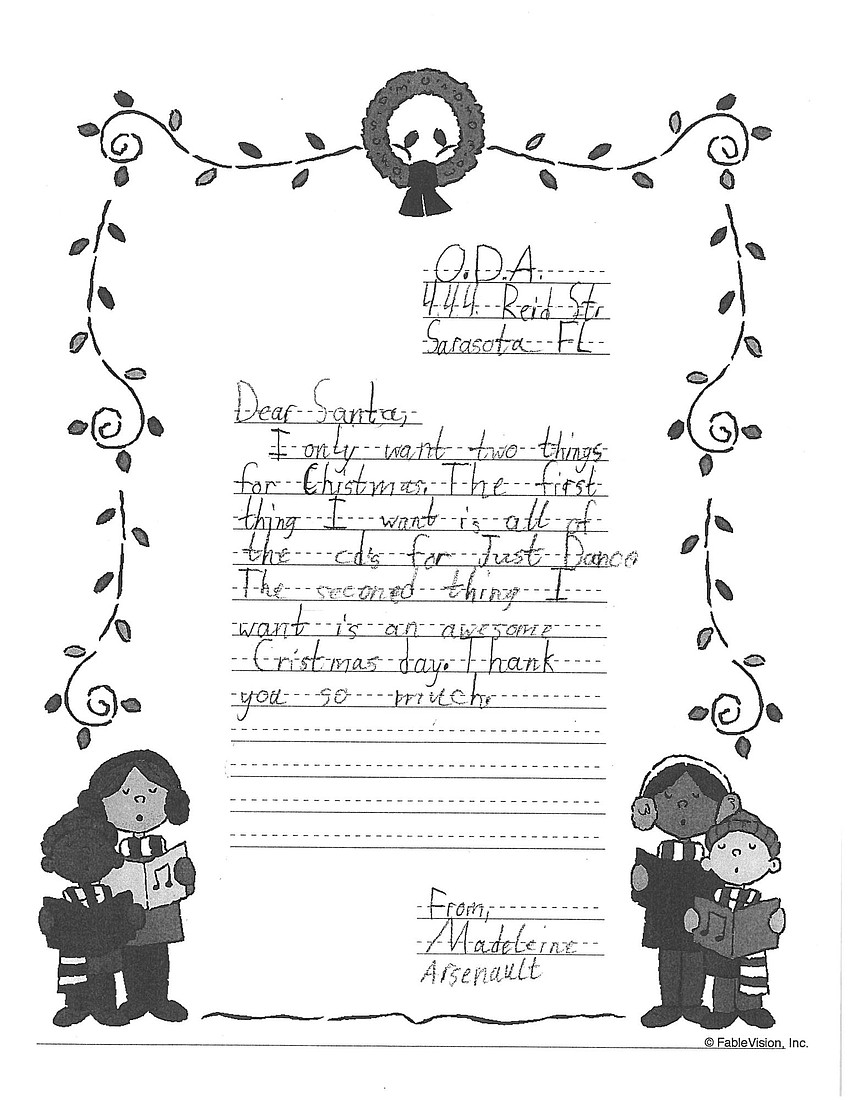 O.D.A.
444 Reid Str
Sarasota FL
Dear Santa,
I only want two things
for Chistmas. The first
thing I want is all of
the cd's for Just Dance
The seconed thing I
want is an awesome
Cristmas day. Thank
you so much.
From,
Madeleine
Arsenault
© FableVision, Inc.